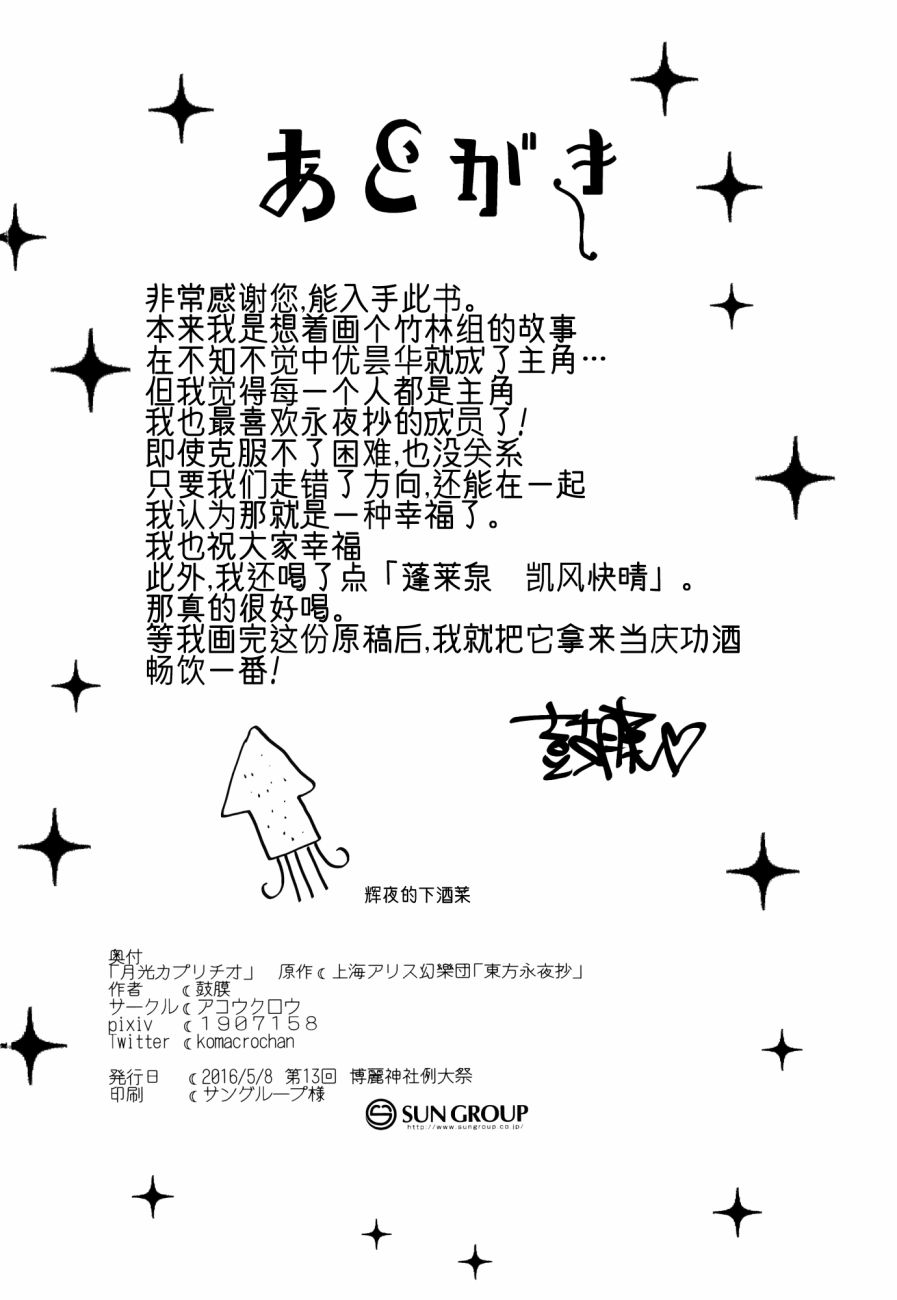 あとがき
非常感谢您,能入手此书。
本来我是想着画个竹林组的故事
在不知不觉中优昙华就成了主角…
但我觉得每一个人都是主角
我也最喜欢永夜抄的成员了!
即使克服不了困难,也没关系
只要我们走错了方向,还能在一起
我认为那就是一种幸福了。
我也祝大家幸福
此外,我还喝了点「蓬莱泉　凯风快晴」。
那真的很好喝。
等我画完这份原稿后,我就把它拿来当庆功酒
畅饮一番!
鼓膜♡
辉夜的下酒菜
奥付
「月光カプリチオ」　原作☾上海アリス幻樂団「東方永夜抄」
作者　☾鼓膜
サークル☾アコウクロウ
pixiv　☾1907158
Twitter ☾komacrochan
発行日　☾2016/5/8 第13回 博麗神社例大祭
印刷　☾サングループ様
SUN GROUP
http://www.sungroup.co.jp/